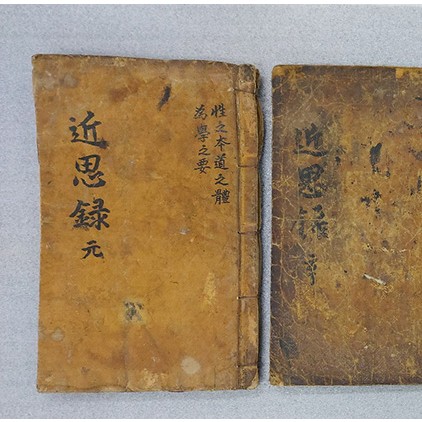 性之本道之體
為學之要
近思録 元
近思録